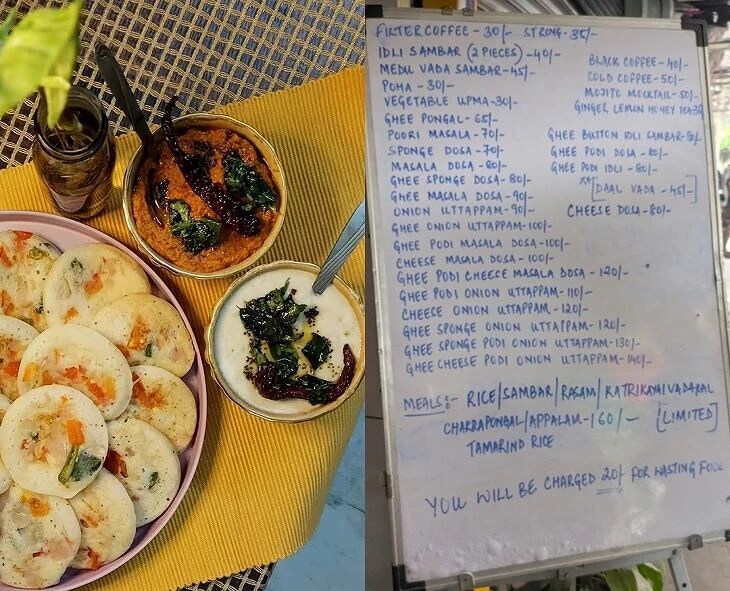 FILTER COFFEE - 30/- STRONG - 35/-
IDLI SAMBAR (2 PIECES) - 40/-
MEDU VADA SAMBAR - 45/-
POHA - 30/-
VEGETABLE UPMA - 30/-
GHEE PONGAL - 65/-
POORI MASALA - 70/-
SPONGE DOSA - 70/-
MASALA DOSA - 80/-
GHEE SPONGE DOSA - 80/-
GHEE MASALA DOSA - 90/-
ONION UTTAPPAM - 90/-
GHEE ONION UTTAPPAM - 100/-
GHEE PODI MASALA DOSA - 100/-
CHEESE MASALA DOSA - 100/-
GHEE PODI CHEESE MASALA DOSA - 120/-
GHEE PODI ONION UTTAPPAM - 110/-
CHEESE ONION UTTAPPAM - 120/-
GHEE SPONGE ONION UTTAPPAM - 120/-
GHEE SPONGE PODI ONION UTTAPPAM - 130/-
GHEE CHEESE PODI ONION UTTAPPAM - 140/-
BLACK COFFEE - 40/-
COLD COFFEE - 50/-
MOJITO MOCKTAIL - 50/-
GINGER LEMON HONEY TEA
GHEE BUTTON IDLI SAMBAR - 80/-
GHEE PODI DOSA - 80/-
GHEE PODI IDLI - 80/-
[DAAL VADA - 45/-]
CHEESE DOSA - 80/-
MEALS :- RICE/SAMBAR/RASAM/KATRIKAYAI VADAKAL
CHAKRAPONGAL/APPALAM - 160/- [LIMITED]
TAMARIND RICE
YOU WILL BE CHARGED 20/- FOR WASTING FOOD